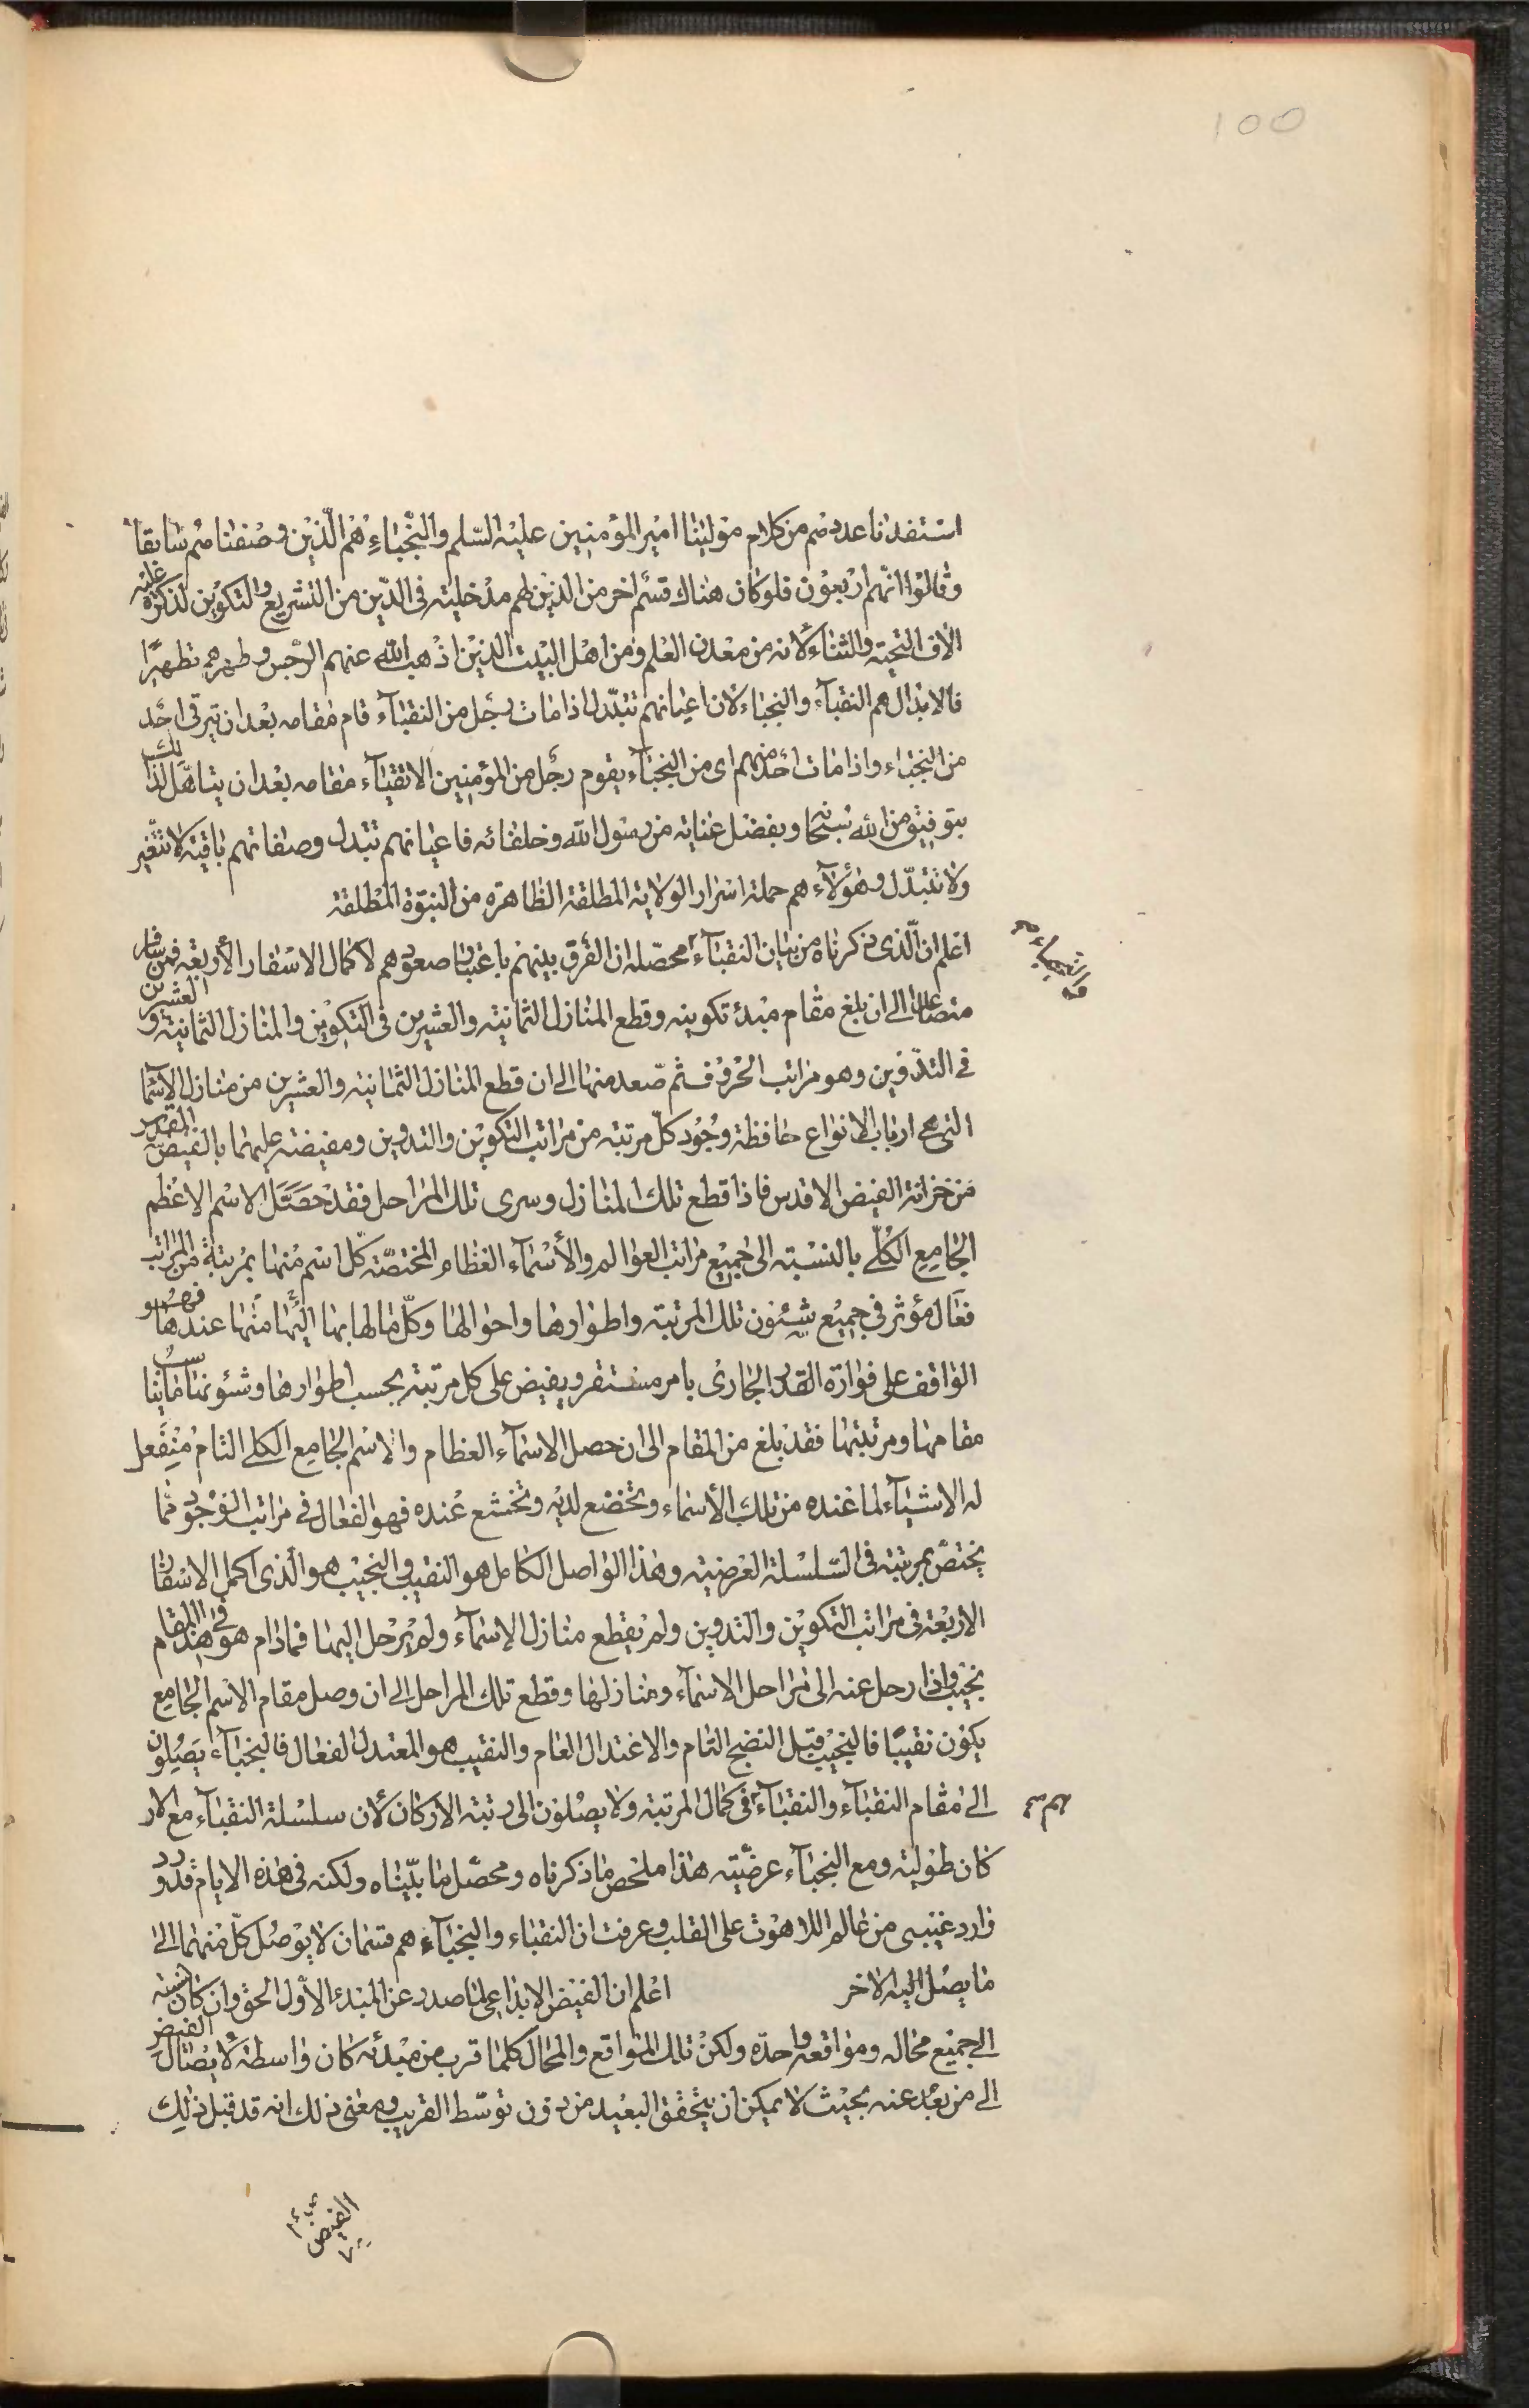 100
استفدنا عددهم من كلام مولينا امير المؤمنين عليه السلم والنجباء هم الذين وصفناهم سابقا
وقالوا انهم اربعون فلو كان هناك قسم اخر من الذين لهم مدخلية فى الدين من التشريع والتكوين لذكره عليه
الاف التحية والثناء لانه من معدن العلم ومن اهل البيت الذين اذهب الله عنهم الرجس وطهرهم تطهيرا
فالابدال هم النقبآء والنجباء لان اعيانهم تتبدل اذا مات رجل من النقبآء قام مقامه بعد ان يترقى احد
من النجباء واذا مات احد منهم اى من النجبآء يقوم رجل من المؤمنين الاتقيآء مقامه بعد ان يتاهل لذلك
بتوفيق من الله سبحانه وبفضل عناية من رسول الله وخلفائه فاعيانهم تتبدل وصفاتهم باقية لا تتغير
ولا تتبدل وهؤلآء هم حملة اسرار الولاية المطلقة الظاهرة من النبوة المطلقة
اعلم ان الذى ذكرناه من بيان النقبآء محصله ان الفرق بينهم باعتبار صعودهم لاكمال الاسفار الأربعة فمن سافر
متصاعدا الى ان بلغ مقام مبدء تكوينه وقطع المنازل الثمانية والعشرين فى التكوين والمنازل الثمانية والعشرين
فى التدوين وهو مراتب الحروف ثم صعد منها الى ان قطع المنازل الثمانية والعشرين من منازل الاسما
التى هى ارباب الانواع حافظة وجود كل مرتبة من مراتب التكوين والتدوين ومفيضة عليهما بالفيض المقدس
من خزانة الفيض الاقدس فاذا قطع تلك المنازل وسرى تلك المراحل فقد حصل الاسم الاعظم
الجامع الكلى بالنسبة الى جميع مراتب العوالم والأسمآء العظام المختصة كل اسم منها بمرتبة من المراتب
فعال مؤثر فى جميع شئون تلك المرتبة واطوارها واحوالها وكل ما لها بها اليها منها عندها فهو
الواقف على فوارة القدر الجارى بامر مستقر ويفيض على كل مرتبة بحسب اطوارها وشئونها ما يناسب
مقامها ومرتبتها فقد بلغ من المقام الى ان حصل الاسمآء العظام والاسم الجامع الكلى التام منفعل
له الاشيآء لما عنده من تلك الأسماء وتخضع لديه وتخشع عنده فهو الفعال فى مراتب الوجود مما
يختص بمرتبته فى السلسلة العرضية وهذا الواصل الكامل هو النقيب والنجيب هو الذى اكمل الاسفار
الاربعة فى مراتب التكوين والتدوين ولم يقطع منازل الاسمآء ولم يرحل اليها فما دام هو فى هذا المقام
نجيب واذا رحل عنه الى مراحل الاسمآء ومنازلها وقطع تلك المراحل الى ان وصل مقام الاسم الجامع
يكون نقيبا فالنجيب قبل النضج التام والاعتدال العام والنقيب هو المعتدل الفعال فالنجبآء يصلون
الى مقام النقبآء والنقبآء فى كمال المرتبة ولا يصلون الى رتبة الاركان لأن سلسلة النقبآء مع الار
كان طولية ومع النجبآء عرضية هذا ملخص ما ذكرناه ومحصل ما بيناه ولكنه فى هذه الايام قد ورد
وارد غيبى من عالم اللاهوت على القلب وعرفت ان النقباء والنجبآء هم قسمان لا يوصل كل منهما الى
ما يصل اليه الاخر اعلم ان الفيض الابداعى لما صدر عن المبدء الاول الحق وان كان نسبته
الى جميع محاله ومواقعه واحده ولكن تلك المواقع والمحال كلما قرب من مبدئه كان واسطة لايصال الفيض
الى من بعد عنه بحيث لا يمكن ان يتحقق البعيد من دون توسط القريب ومعنى ذلك انه قد قبل ذلك
الفيض